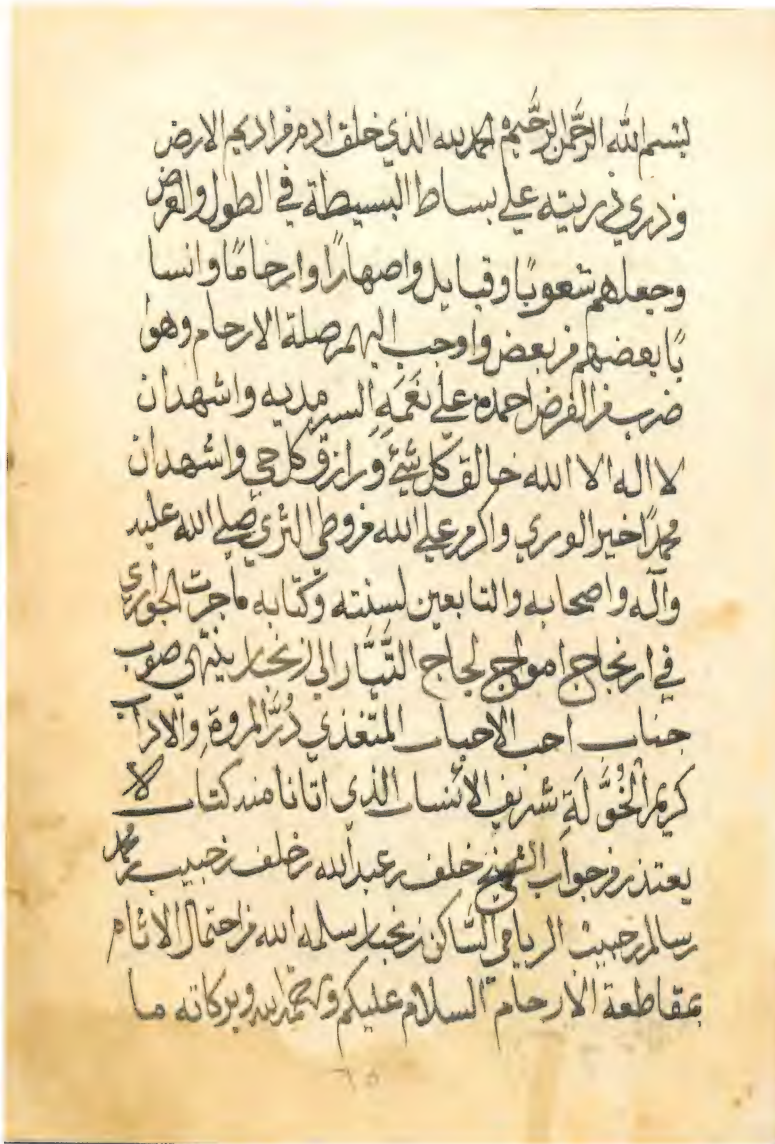 بسم الله الرحمن الرحيم الحمد لله الذي خلق ادم من اديم الارض
وذري ذريته علي بساط البسيطة في الطول والعرض
وجعلهم شعوبًا وقبايل واصهارًا وارحامًا وانسا
بًا بعضهم من بعض واوجب اليهم صلة الارحام وهو
ضرب من الفرض احمده علي نعمه السرمديه واشهد ان
لا اله الا الله خالق كل شيئ ورازق كل حي واشهد ان
محمدًا خير الوري واكرم علي الله من وطي الثري صلي الله عليه
وآله واصحابه والتابعين لسنته وكتابه ما جرت الجواري
في ارتجاج امواج لجاج التيَّار الي زنجبار ينتهي صوب
جناب احب الاحباب المتغذي دُرَّ المروة والاداب
كريم الخُوَّلَةِ شريف الأنساب الذي اتانا منه كتاب لا
يعتذر من جواب الشيخ خلف بن عبدالله بن خلف بن حبيب بن محمد
بن سالم بن حبيب الرياحي السَّاكن زنجبار سلمه الله من احتمال الاثام
بمقاطعة الارحام السلام عليكم ورحمة الله وبركاته ما
٦٥